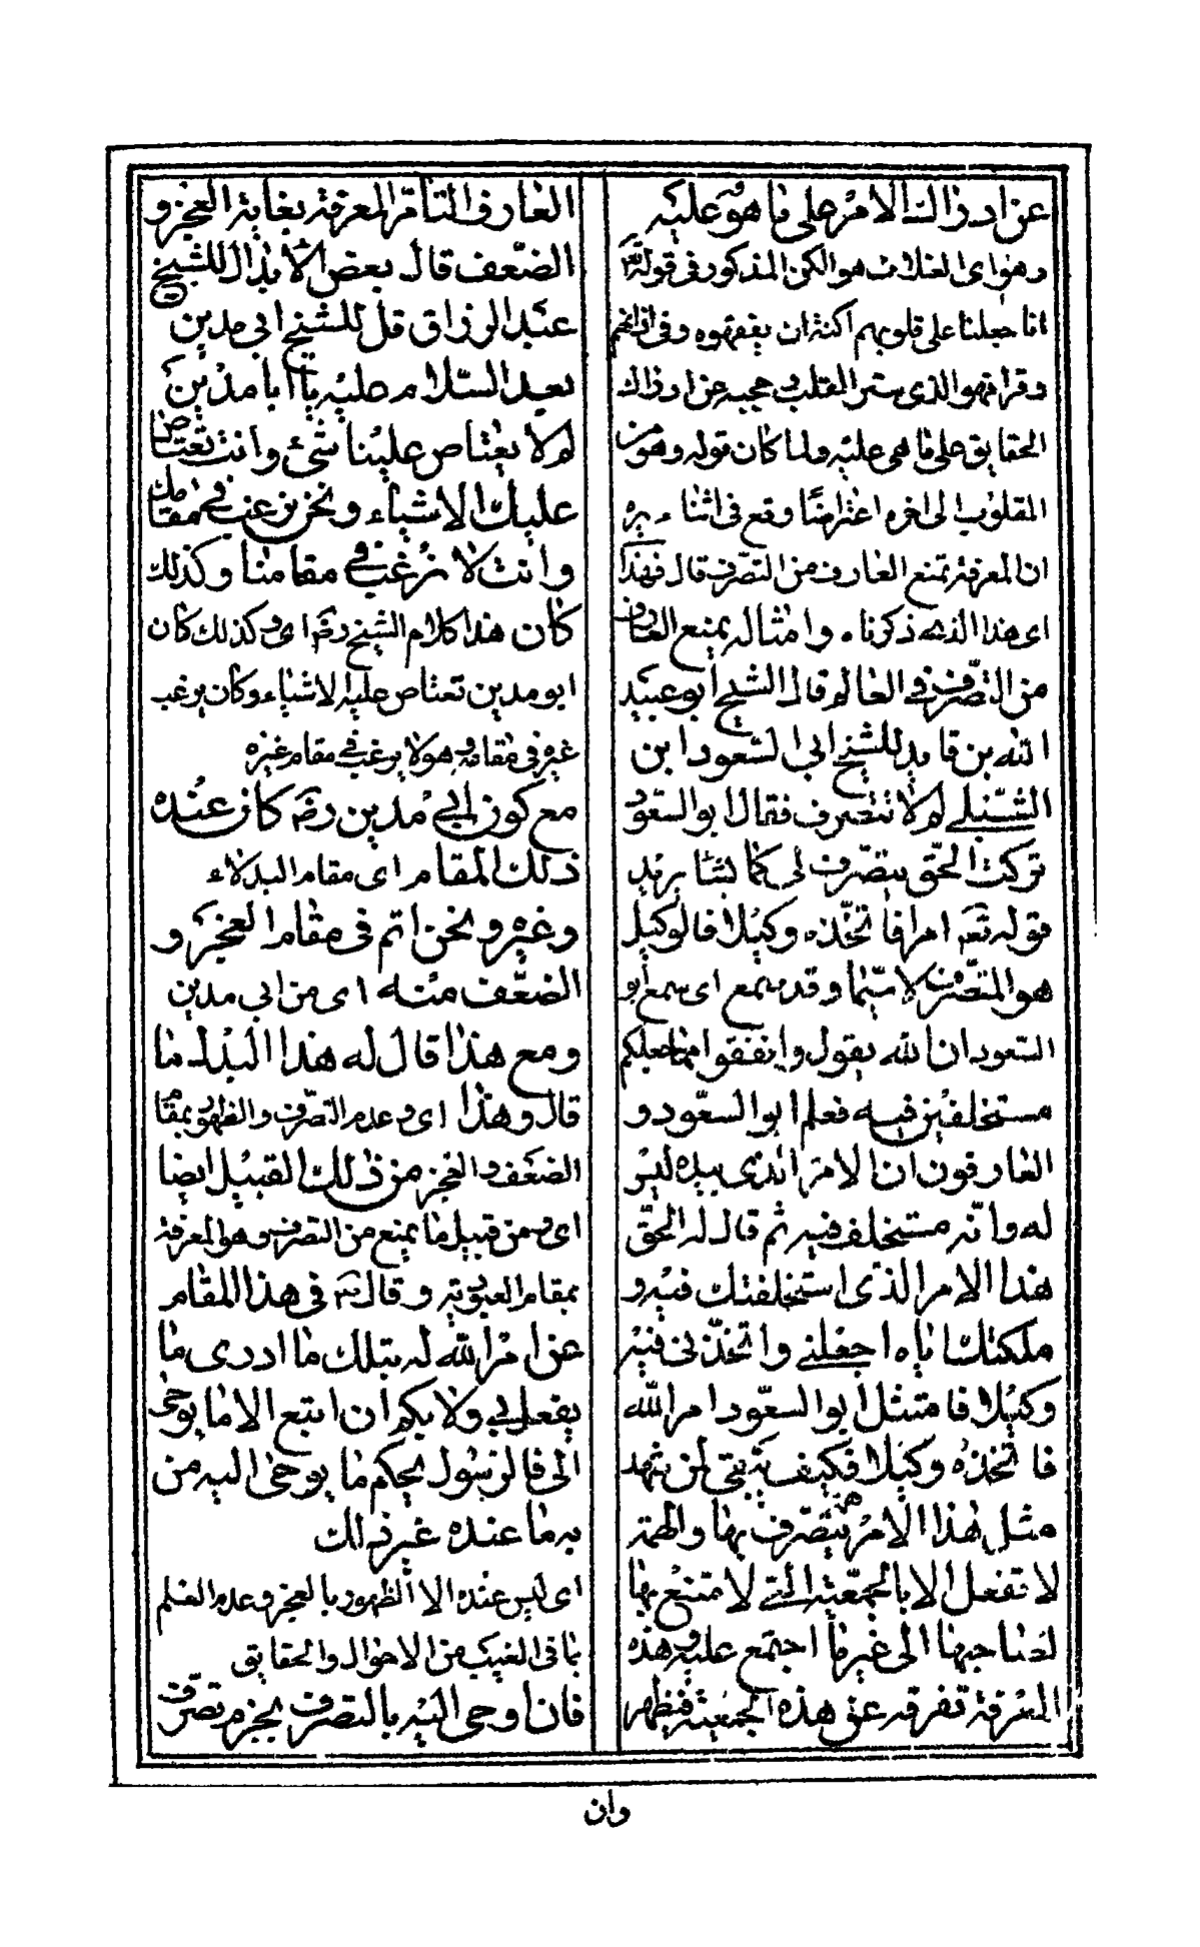 عن ادراك الامر على ما هو عليه
وهو اى الغلاف هو الكن المذكور فى قوله تعم
انا جعلنا على قلوبهم اكنة ان يفقهوه وفى اذانهم
وقرا فهو الذى ستر القلب و حجبه عن ادراك
الحقايق على ما هى عليه ولما كان قوله وهو من
القلوب الى اخره اعتراضا وقع فى اثناء
ان المعرفة تمنع العارف من التصرف قال فهذا
اى هذا الذى ذكرناه وامثاله يمنع العارف
من التصرف فى العالم قال الشيخ ابو عبيد
الله بن قايد للشيخ ابى السعود ابن
الشبلى لم لا تتصرف فقال ابو السعود
تركت الحق يتصرف لى كما يشا يريد
قوله تعم امرا فاتخذه وكيلا فالوكيل
هو المتصرف لا سيما وقد سمع اى سمع ابو
السعود ان الله يقول وانفقوا مما جعلكم
مستخلفين فيه فعلم ابو السعود و
العارفون ان الامر الذى بيده ليس
له وانه مستخلف فيه ثم قال له الحق
هذا الامر الذى استخلفتك فيه و
ملكتك اياه اجعلنى واتخذنى فيه
وكيلا فامتثل ابو السعود امر الله
فاتخذه وكيلا فكيف يبقى لمن شهد
مثل هذا الامر همة يتصرف بها والهمة
لا تفعل الا بالجمعية التى لا متسع بها
لصاحبها الى غير ما اجتمع عليه وهذه
المعرفة تفرقه عن هذه الجمعية فيظهر
العارف التام المعرفة بغاية العجز و
الضعف قال بعض الابدال للشيخ
عبد الرزاق قل للشيخ ابى مدين
بعد السلام عليه يا ابا مدين
لم لا يعتاص علينا شئ وانت تعتاص
عليك الاشياء ونحن نرغب فى مقامك
وانت لا ترغب فى مقامنا وكذلك
كان هذا كلام الشيخ رضه اى وكذلك كان
ابو مدين تعتاص عليه الاشياء وكان يرغب
غيره فى مقامه وهو لا يرغب فى مقام غيره
مع كون ابى مدين رضه كان عنده
ذلك المقام اى مقام البدلاء
وغيره ونحن اتم فى مقام العجز و
الضعف منه اى من ابى مدين
ومع هذا قال له هذا البدل ما
قال وهذا اى و عدم التصرف والظهور بمقام
الضعف والعجز من ذلك القبيل ايضا
اى من قبيل ما يمنع من التصرف وهو المعرفة
بمقام العبودية وقال صم فى هذا المقام
عن امر الله له بذلك ما ادرى ما
يفعل بى ولا بكم ان اتبع الا ما يوحى
الى فالرسول بحكم ما يوحى اليه من
به ما عنده غير ذلك
اى ليس عنده الا الظهور بالعجز وعدم العلم
بما فى الغيب من الاحوال والحقايق
فان اوحى اليه بالتصرف بجزم تصرف
وان